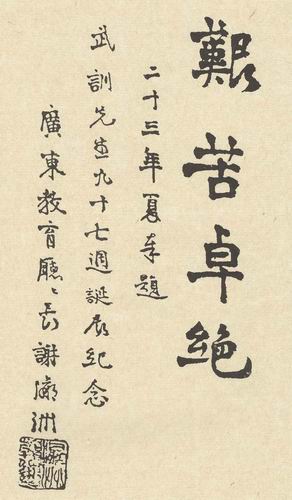 艱苦卓絶
二十三年夏奉題
武訓先生九十七週誕辰紀念
廣東教育廳々長謝瀛洲